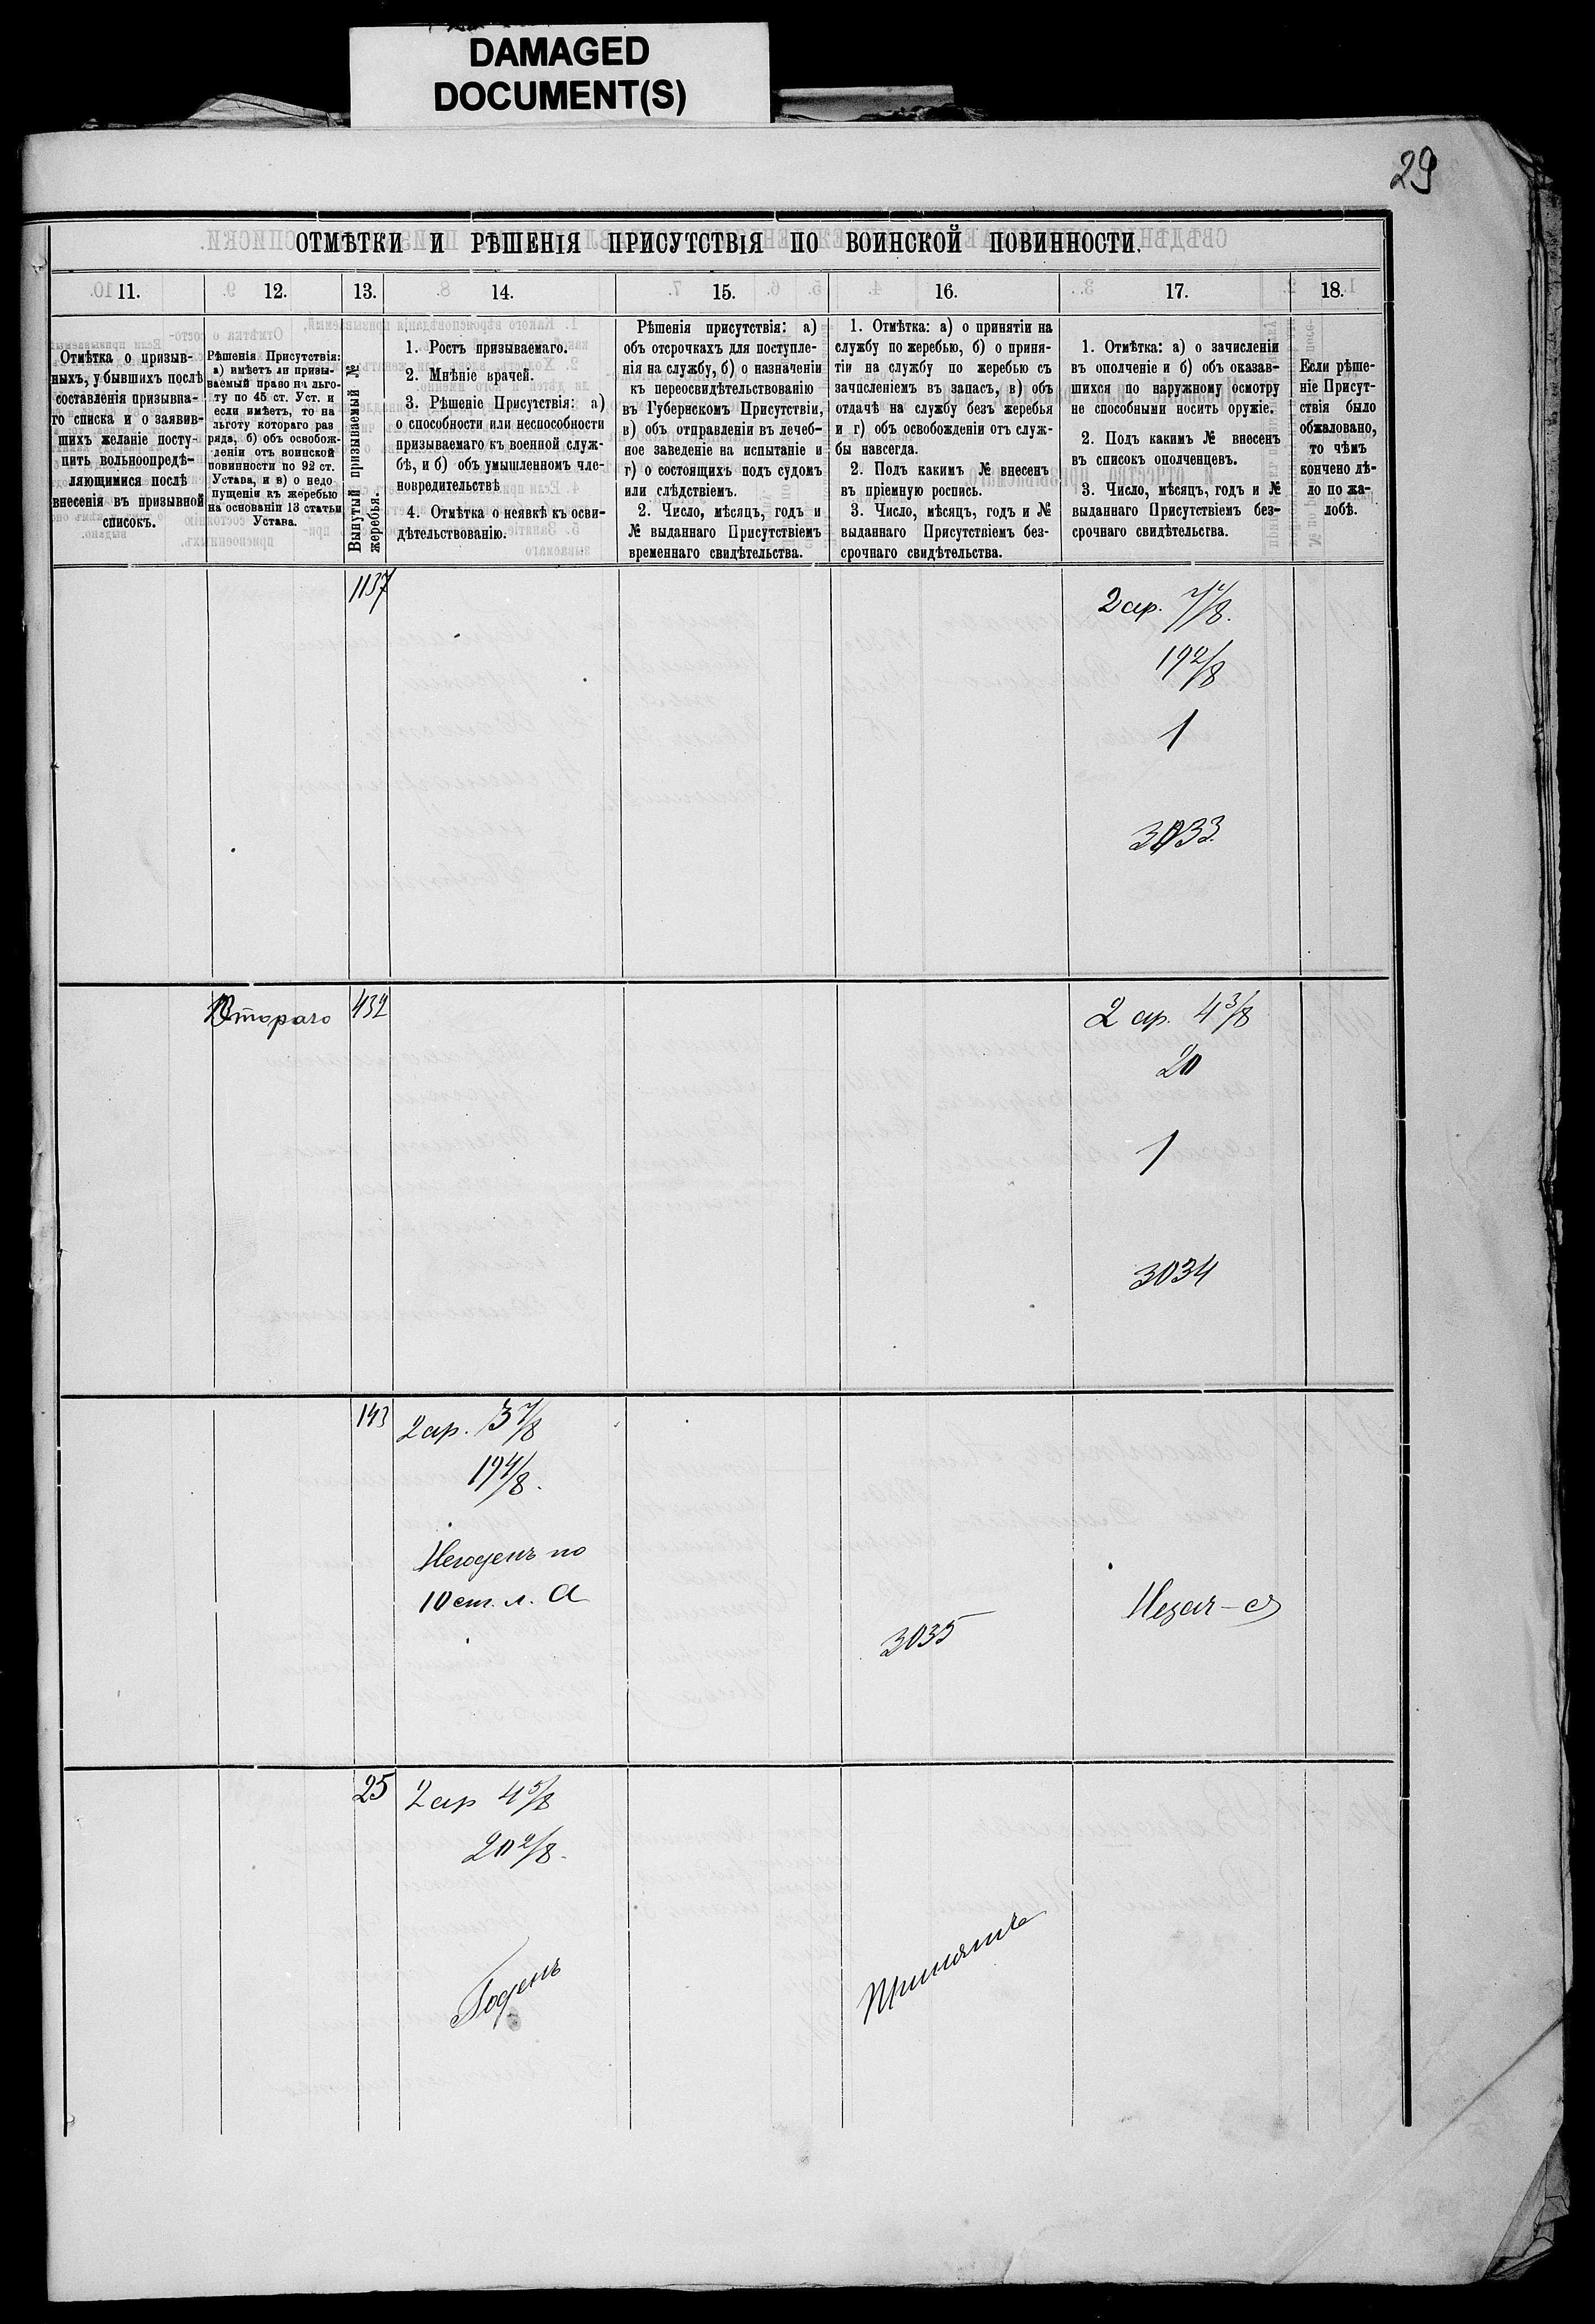 DAMAGED
DOCUMENT(S)
29
ОТМѢТКИ И РѢШЕНІЯ ПРИСУТСТВІЯ ПО ВОИНСКОЙ ПОВИННОСТИ.
11.
12.
13.
14.
15.
16.
17.
18.
Отмѣтка о призыв-
ныхъ, убывшихъ послѣ
составленія призывна-
го списка и о заявив-
шихъ желаніе посту-
пить вольноопредѣ-
ляющимися послѣ
внесенія въ призывной
списокъ.
Рѣшенія Присутствія:
а) имѣетъ ли призы-
ваемый право на льго-
ту по 45 ст. Уст. и
если имѣетъ, то на
льготу котораго раз
ряда, б) объ освобож-
деніи отъ воинской
повинности по 92 ст.
Устава, и в) о недо
пущеніи къ жеребью
на основаніи 13 статьи
Устава.
Вынутый призываемый №
жеребья.
1. Ростъ призываемаго.
2. Мнѣніе врачей.
3. Рѣшеніе Присутствія: а)
о способности или неспособности
призываемаго къ военной служ-
бѣ, и б) объ умышленномъ чле-
новредительствѣ
4. Отмѣтка о неявкѣ къ осви-
дѣтельствованію.
Рѣшенія присутствія: а)
объ отсрочкахъ для поступле-
нія на службу, б) о назначеніи
къ переосвидѣтельствованію
въ Губернскомъ Присутствіи,
в) объ отправленіи въ лечеб-
ное заведеніе на испытаніе и
г) о состоящихъ подъ судомъ
или слѣдствіемъ.
2. Число, мѣсяцъ, годъ и
№ выданнаго Присутствіемъ
временнаго свидѣтельства.
1. Отмѣтка: а) о принятіи на
службу по жеребью, б) о приня-
тіи на службу по жеребью съ
зачисленіемъ въ запасъ, в) объ
отдачѣ на службу безъ жеребья
и г) объ освобожденіи отъ служ-
бы навсегда.
2. Подъ какимъ № внесенъ
въ пріемную роспись.
3. Число, мѣсяцъ, годъ и №
выданнаго Присутствіемъ без-
срочнаго свидѣтельства.
1. Отмѣтка: а) о зачисленіи
въ ополченіе и б) объ оказав-
шихся по наружному осмотру
не способными носить оружіе.
2. Подъ какимъ № внесенъ
въ списокъ ополченцевъ.
3. Число, мѣсяцъ, годъ и №
выданнаго Присутствіемъ без-
срочнаго свидѣтельства.
Если рѣше-
ніе Присут-
ствія было
обжаловано,
то чѣмъ
кончено дѣ-
ло по жа-
лобѣ.
1137
2 ар.
19 2/8
1
3033
Втораго
432
2 ар. 4 3/8
20
1
3034
143
2 ар. 3 7/8
19 4/8.
Негоденъ по
10 ст. л. А
3035
Незач-ся
25
2 ар 4 5/8
20 2/8.
Годенъ
Принятъ